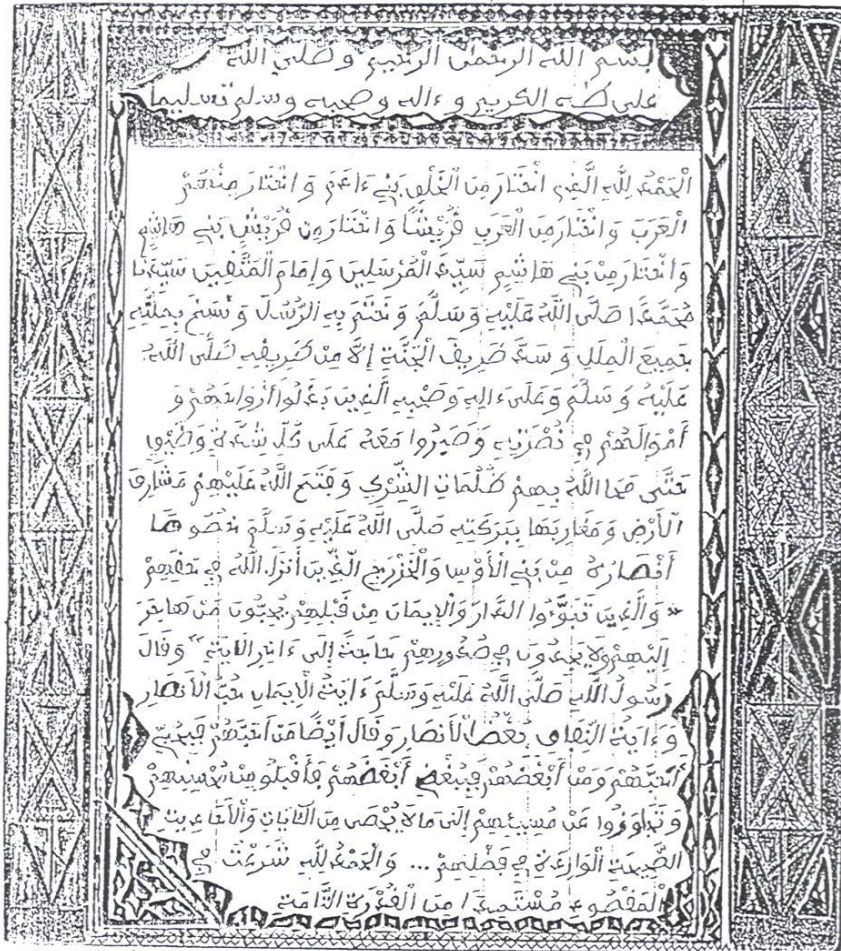 بسم الله الرحمن الرحيم و صلى الله
على طه الكريم و ءاله و صحبه و سلم تسليما
الْحَمْدُ لِلَّهِ الَّذِي اخْتَارَ مِنَ الْخَلْقِ بَنِي ءَادَمَ وَ اخْتَارَ مِنْهُمُ
الْعَرَبَ وَ اخْتَارَ مِنَ الْعَرَبِ قُرَيْشًا وَ اخْتَارَ مِنْ قُرَيْشٍ بَنِي هَاشِمٍ
وَ اخْتَارَ مِنْ بَنِي هَاشِمٍ سَيِّدَ الْمُرْسَلِينَ وَ إِمَامَ الْمُتَّقِينَ سَيِّدَنَا
مُحَمَّدًا صَلَّى اللَّهُ عَلَيْهِ وَ سَلَّمَ وَ خَتَمَ بِهِ الرُّسُلَ وَ نَسَخَ بِمِلَّتِهِ
جَمِيعَ الْمِلَلِ وَ سَدَّ طَرِيقَ الْجَنَّةِ إِلَّا مِنْ طَرِيقِهِ صَلَّى اللَّهُ
عَلَيْهِ وَ سَلَّمَ وَ عَلَى ءَالِهِ وَ صَحْبِهِ الَّذِينَ بَذَلُوا أَرْوَاحَهُمْ وَ
أَمْوَالَهُمْ فِي نُصْرَتِهِ وَ صَبَرُوا مَعَهُ عَلَى كُلِّ شِدَّةٍ وَ ضِيقٍ
حَتَّى مَحَا اللَّهُ بِهِمْ ظُلُمَاتِ الشِّرْكِ وَ فَتَحَ اللَّهُ عَلَيْهِمْ مَشَارِقَ
الْأَرْضِ وَ مَغَارِبَهَا بِبَرَكَتِهِ صَلَّى اللَّهُ عَلَيْهِ وَ سَلَّمَ خُصُوصًا
أَنْصَارَهُ مِنْ بَنِي الْأَوْسِ وَ الْخَزْرَجِ الَّذِينَ أَنْزَلَ اللَّهُ فِي حَقِّهِمْ
« وَ الَّذِينَ تَبَوَّءُوا الدَّارَ وَ الْإِيمَانَ مِنْ قَبْلِهِمْ يُحِبُّونَ مَنْ هَاجَرَ
إِلَيْهِمْ وَ لَا يَجِدُونَ فِي صُدُورِهِمْ حَاجَةً إِلَى ءَاخِرِ الْآيَةِ » وَ قَالَ
رَسُولُ اللَّهِ صَلَّى اللَّهُ عَلَيْهِ وَ سَلَّمَ ءَايَةُ الْإِيمَانِ حُبُّ الْأَنْصَارِ
وَ ءَايَةُ النِّفَاقِ بُغْضُ الْأَنْصَارِ وَ قَالَ أَيْضًا مَنْ أَحَبَّهُمْ فَبِحُبِّي
أَحَبَّهُمْ وَ مَنْ أَبْغَضَهُمْ فَبِبُغْضِي أَبْغَضَهُمْ فَأَقْبَلُو مِنْ مُحْسِنِهِمْ
وَ تَجَاوَزُوا عَنْ مُسِيئِهِمْ إِلَى مَا لَا يُحْصَى مِنَ الْآيَاتِ وَ الْأَحَادِيثِ
الصَّحِيحَةِ الْوَارِدَةِ فِي فَضْلِهِمْ ... وَ الْحَمْدُ لِلَّهِ شَرَعْتُ فِي
الْمَقْصُودِ مُسْتَمِدًّا مِنَ الْقُدْرَةِ التَّامَّةِ